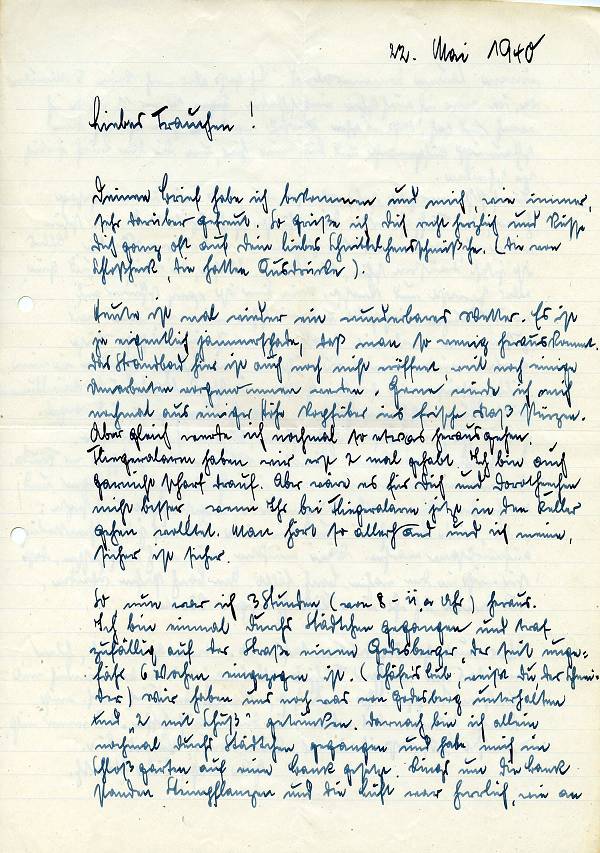 22. Mai 1940
Liebes Trauchen!
Deinen Brief habe ich bekommen und mich, wie immer,
sehr darüber gefreut. So grüße ich Dich recht herzlich und küsse
Dich ganz oft auf dein liebes
die hatten Ausdrücke).
Heute ist mal wieder ein wunderbares Wetter. Es ist
ja eigentlich jammerschade, daß man so wenig herauskommt.
Das Strandbad hier ist auch noch nicht eröffnet, weil noch einige
vorgenommen werden. Gerne würde ich mich
nochmal aus einiger Höhe kopfüber ins frische Naß stürzen.
Aber gleich werde ich nochmal so etwas herausgehen.
Fliegeralarm haben wir erst 2 mal gehabt. Ich bin auch
garnicht scharf drauf. Aber wäre es für Dich und Dorothechen
nicht besser wenn Ihr bei Fliegeralarm jetzt in den Keller
gehen wolltet. Man hört so allerhand und ich meine,
sicher ist sicher.
So, nun war ich 3 Stunden (von 8 - 11 Uhr) heraus.
Ich bin einmal durchs Städtchen gegangen und traf
zufällig auf der Straße einen Godesberger, der seit unge-
fähr 6 Wochen eingezogen ist. ( weißt du der Schnei-
der) Wir haben uns noch was von Godesberg unterhalten
und "2 mit Schuß" getrunken. Darnach bin ich allein
nochmal durchs Städtchen gegangen und habe mich im
Schloßgarten auf eine Bank gesetzt. Rings um die Bank
standen und die Luft war herrlich, wie an